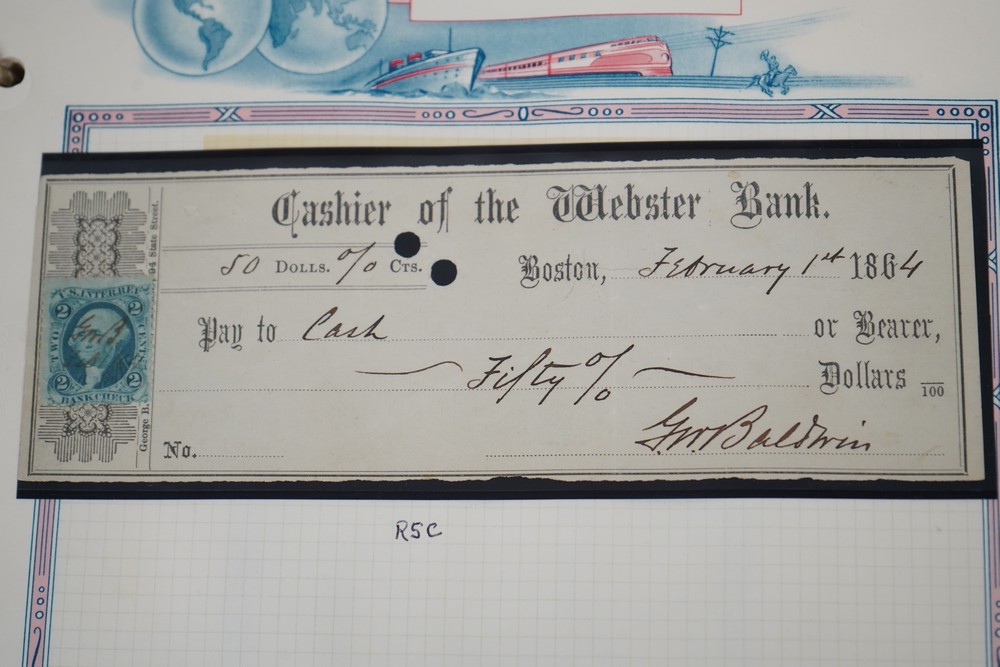 Cashier of the Webster Bank.
50 DOLLS. o/o CTS.
Boston, February 1st 1864
Pay to Cash or Bearer,
Fifty o/o Dollars /100
Geo. Baldwin
No.
94 State Street.
George B.
U.S. INTER REV
2 2
TWO CENTS
2 2
BANK CHECK
R5C